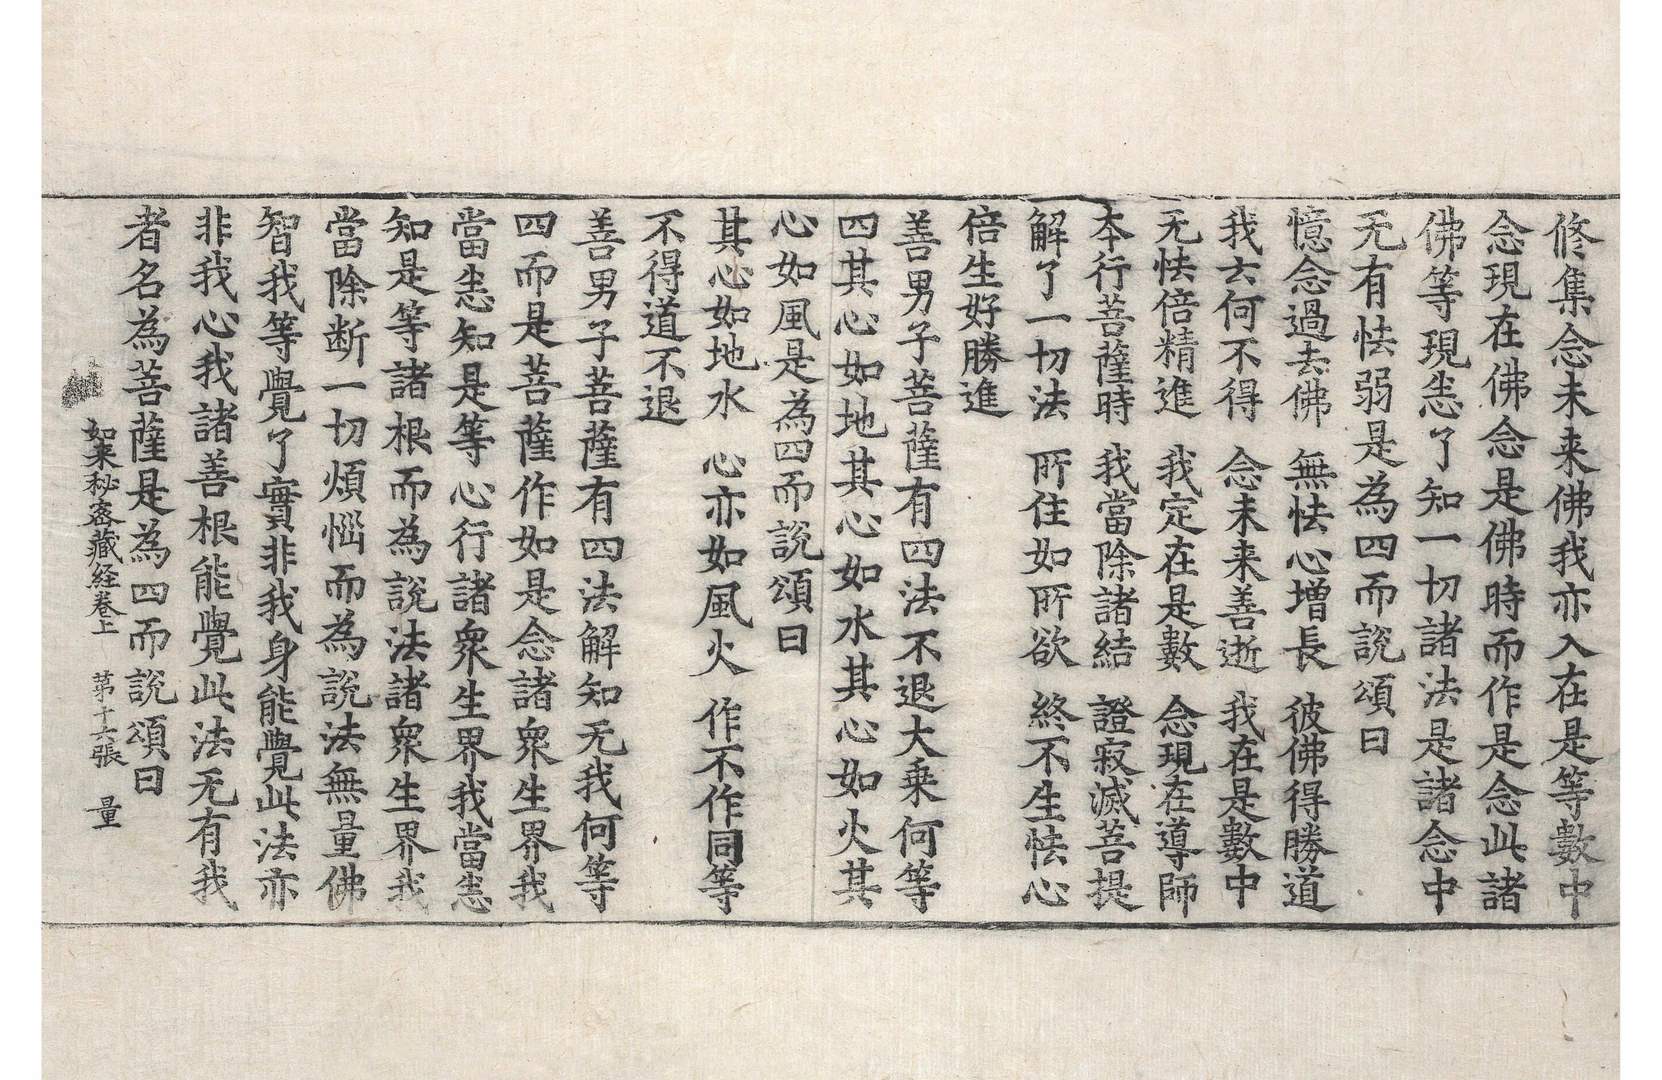 修集念未来佛我亦入在是等數中
念現在佛念是佛時而作是念此諸
佛等現悉了知一切諸法是諸念中
无有怯弱是為四而說頌曰
憶念過去佛　無怯心增長　彼佛得勝道
我去何不得　念未来善逝　我在是數中
无怯倍精進　我定在是數　念現在導師
本行菩薩時　我當除諸結　證寂滅菩提
解了一切法　所住如所欲　終不生怯心
倍生好勝進
善男子菩薩有四法不退大乘何等
四其心如地其心如水其心如火其
心如風是為四而說頌曰
其心如地水　心亦如風火　作不作同等
不得道不退
善男子菩薩有四法解知无我何等
四而是菩薩作如是念諸衆生界我
當悉知是等心行諸衆生界我當悉
知是等諸根而為說法諸衆生界我
當除断一切煩惱而為說法無量佛
智我等覺了實非我身能覺此法亦
非我心我諸善根能覺此法无有我
者名為菩薩是為四而說頌曰
如来秘密藏経卷上　第十六張　量